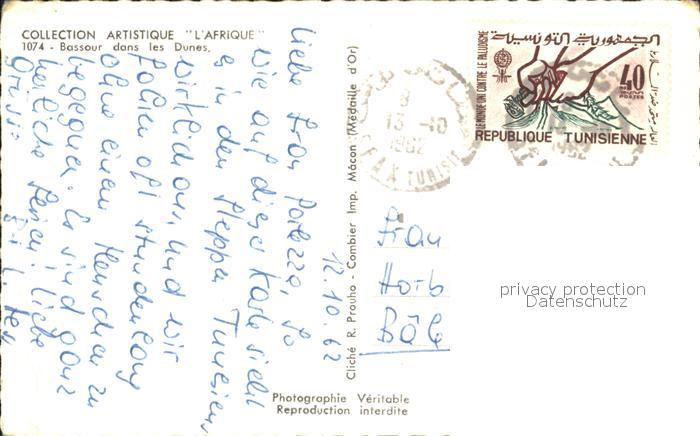 COLLECTION ARTISTIQUE "L'AFRIQUE"
1074 - Bassour dans les Dunes.
12.10.62
Liebe Frau, so
wie auf dieser Karte sieht
es in den Steppen Tunesiens
wirklich aus, und wir
fahren oft stundenlang
ohne einen Menschen zu
begegnen. Es sind ganz
herrliche Ferien! Liebe
Grüsse
Cliché R. Prouho - Combier Imp. Mâcon (Médaille d'Or)
13 -10
1962
SFAX TUNISIE
الجمهورية التونسية
ERADICATION CONTRE LE PALUDISME
40
POSTES
REPUBLIQUE TUNISIENNE
1962
Frau
Horb
Bâle
privacy protection
Datenschutz
Photographie Véritable
Reproduction interdite